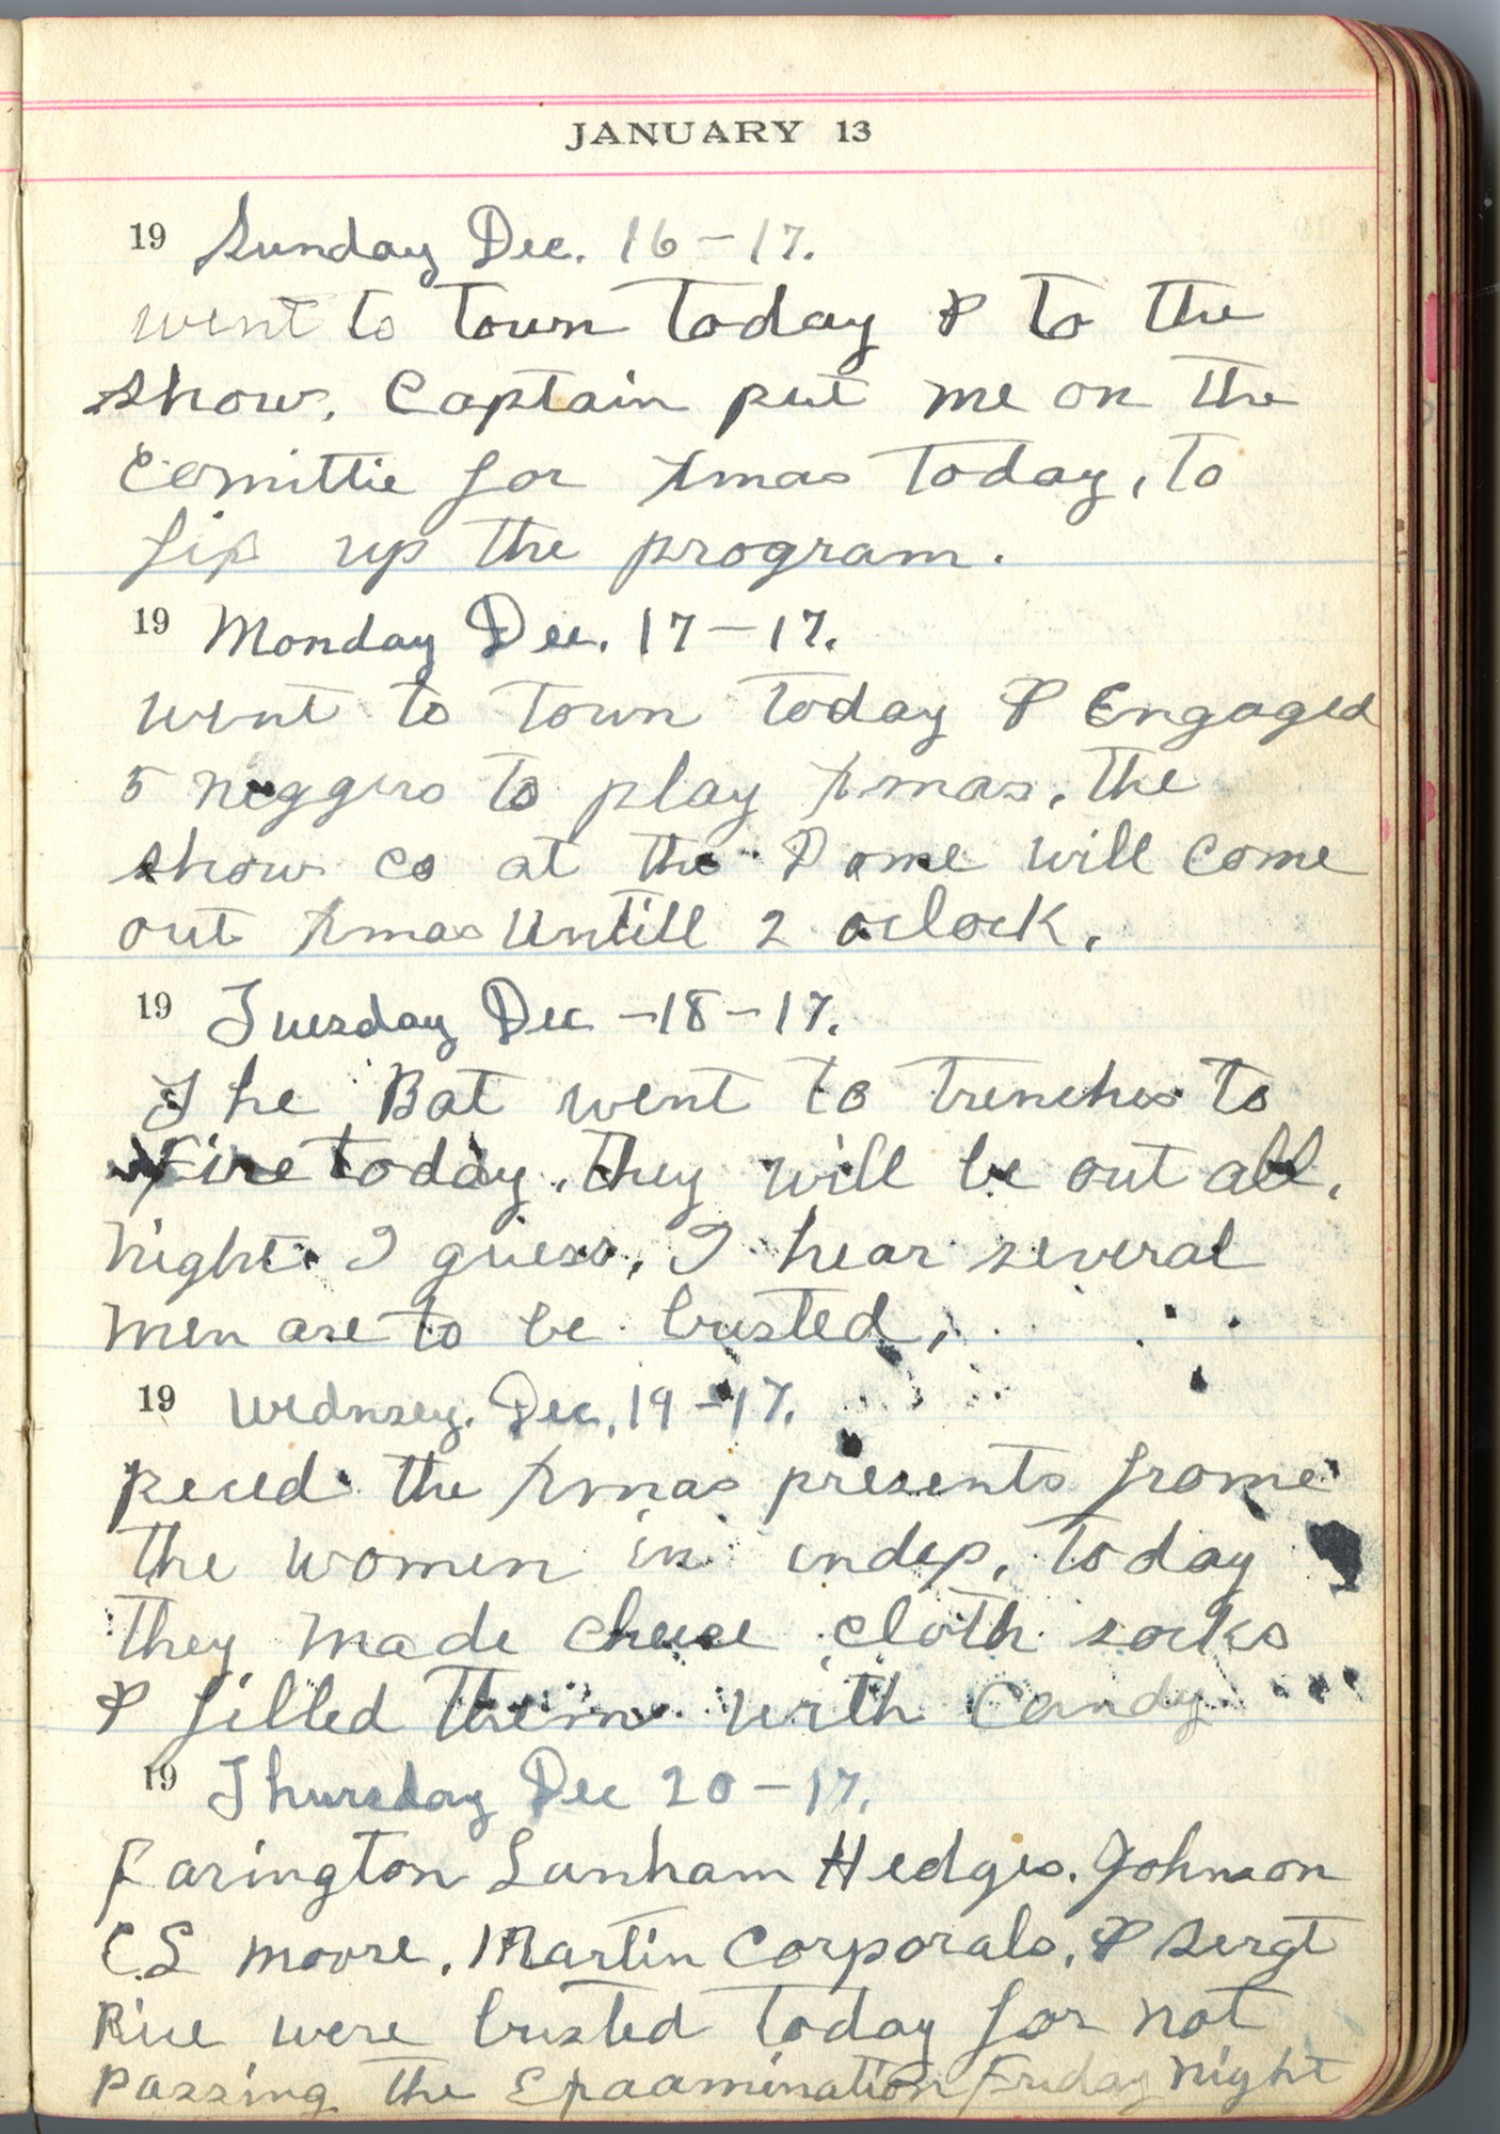 JANUARY 13
19 Sunday Dec. 16-17.
went to town today & to the
show. Captain put me on the
Comittie for Xmas today, to
fix up the program.
19 Monday Dec. 17-17.
went to town today & Engaged
5 neggers to play Xmas. the
show co at the Dome will come
out Xmas Untill 2 oclock.
19 Tuesday Dec -18-17.
The Bat went to trenches to
Fire today. they will be out all.
night I guess. I hear several
men are to be busted.
19 Wednsey. Dec. 19-17.
Reced the Xmas presents frome
the women in indep. today
they made cheese cloth socks
& filled them with candy
19 Thursday Dec 20-17.
Farington Lanham Hedges. Johnson
C.S moore. Martin Corporals. & Sergt
Rice were busted today for not
passing the Exaamination Friday night